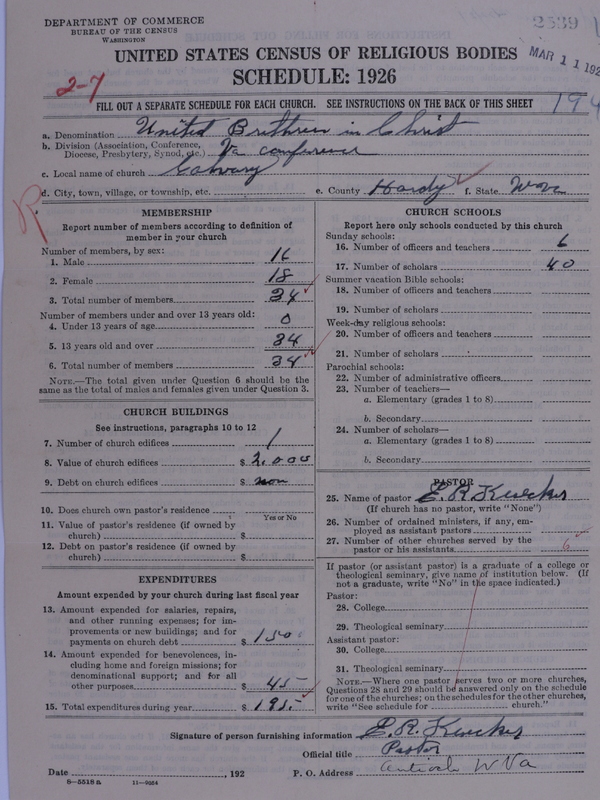 DEPARTMENT OF COMMERCE
BUREAU OF THE CENSUS
WASHINGTON
2539
MAR 11 192
UNITED STATES CENSUS OF RELIGIOUS BODIES
SCHEDULE: 1926
2-7
FILL OUT A SEPARATE SCHEDULE FOR EACH CHURCH. SEE INSTRUCTIONS ON THE BACK OF THIS SHEET
194
a. Denomination United Brethren in Christ
b. Division (Association, Conference, Diocese, Presbytery, Synod, etc.) Va conference
c. Local name of church Calvary
d. City, town, village, or township, etc. e. County Hardy f. State W Va
R
MEMBERSHIP
Report number of members according to definition of
member in your church
Number of members, by sex:
1. Male 16
2. Female 18
3. Total number of members 34
Number of members under and over 13 years old:
4. Under 13 years of age 0
5. 13 years old and over 34
6. Total number of members 34
NOTE.—The total given under Question 6 should be the
same as the total of males and females given under Question 3.
CHURCH BUILDINGS
See instructions, paragraphs 10 to 12
7. Number of church edifices 1
8. Value of church edifices $ 2,000
9. Debt on church edifices $ non
10. Does church own pastor's residence
Yes or No
11. Value of pastor's residence (if owned by
church) $
12. Debt on pastor's residence (if owned by
church) $
EXPENDITURES
Amount expended by your church during last fiscal year
13. Amount expended for salaries, repairs,
and other running expenses; for im-
provements or new buildings; and for
payments on church debt $ 150
14. Amount expended for benevolences, in-
cluding home and foreign missions; for
denominational support; and for all
other purposes $ 45-
15. Total expenditures during year $ 195.-
CHURCH SCHOOLS
Report here only schools conducted by this church
Sunday schools:
16. Number of officers and teachers 6
17. Number of scholars 40
Summer vacation Bible schools:
18. Number of officers and teachers
19. Number of scholars
Week-day religious schools:
20. Number of officers and teachers
21. Number of scholars
Parochial schools:
22. Number of administrative officers
23. Number of teachers—
a. Elementary (grades 1 to 8)
b. Secondary
24. Number of scholars—
a. Elementary (grades 1 to 8)
b. Secondary
PASTOR
25. Name of pastor E. R.
(If church has no pastor, write "None")
26. Number of ordained ministers, if any, em-
ployed as assistant pastors
27. Number of other churches served by the
pastor or his assistants 6
If pastor (or assistant pastor) is a graduate of a college or
theological seminary, give name of institution below. (If
not a graduate, write "No" in the space indicated.)
Pastor:
28. College
29. Theological seminary
Assistant pastor:
30. College
31. Theological seminary
NOTE.—Where one pastor serves two or more churches,
Questions 28 and 29 should be answered only on the schedule
for one of the churches; on the schedules for the other churches,
write "See schedule for church."
Signature of person furnishing information E. R.
Official title Pastor
Date , 192 P. O. Address Antioch W Va
8-5518 a 11-9554